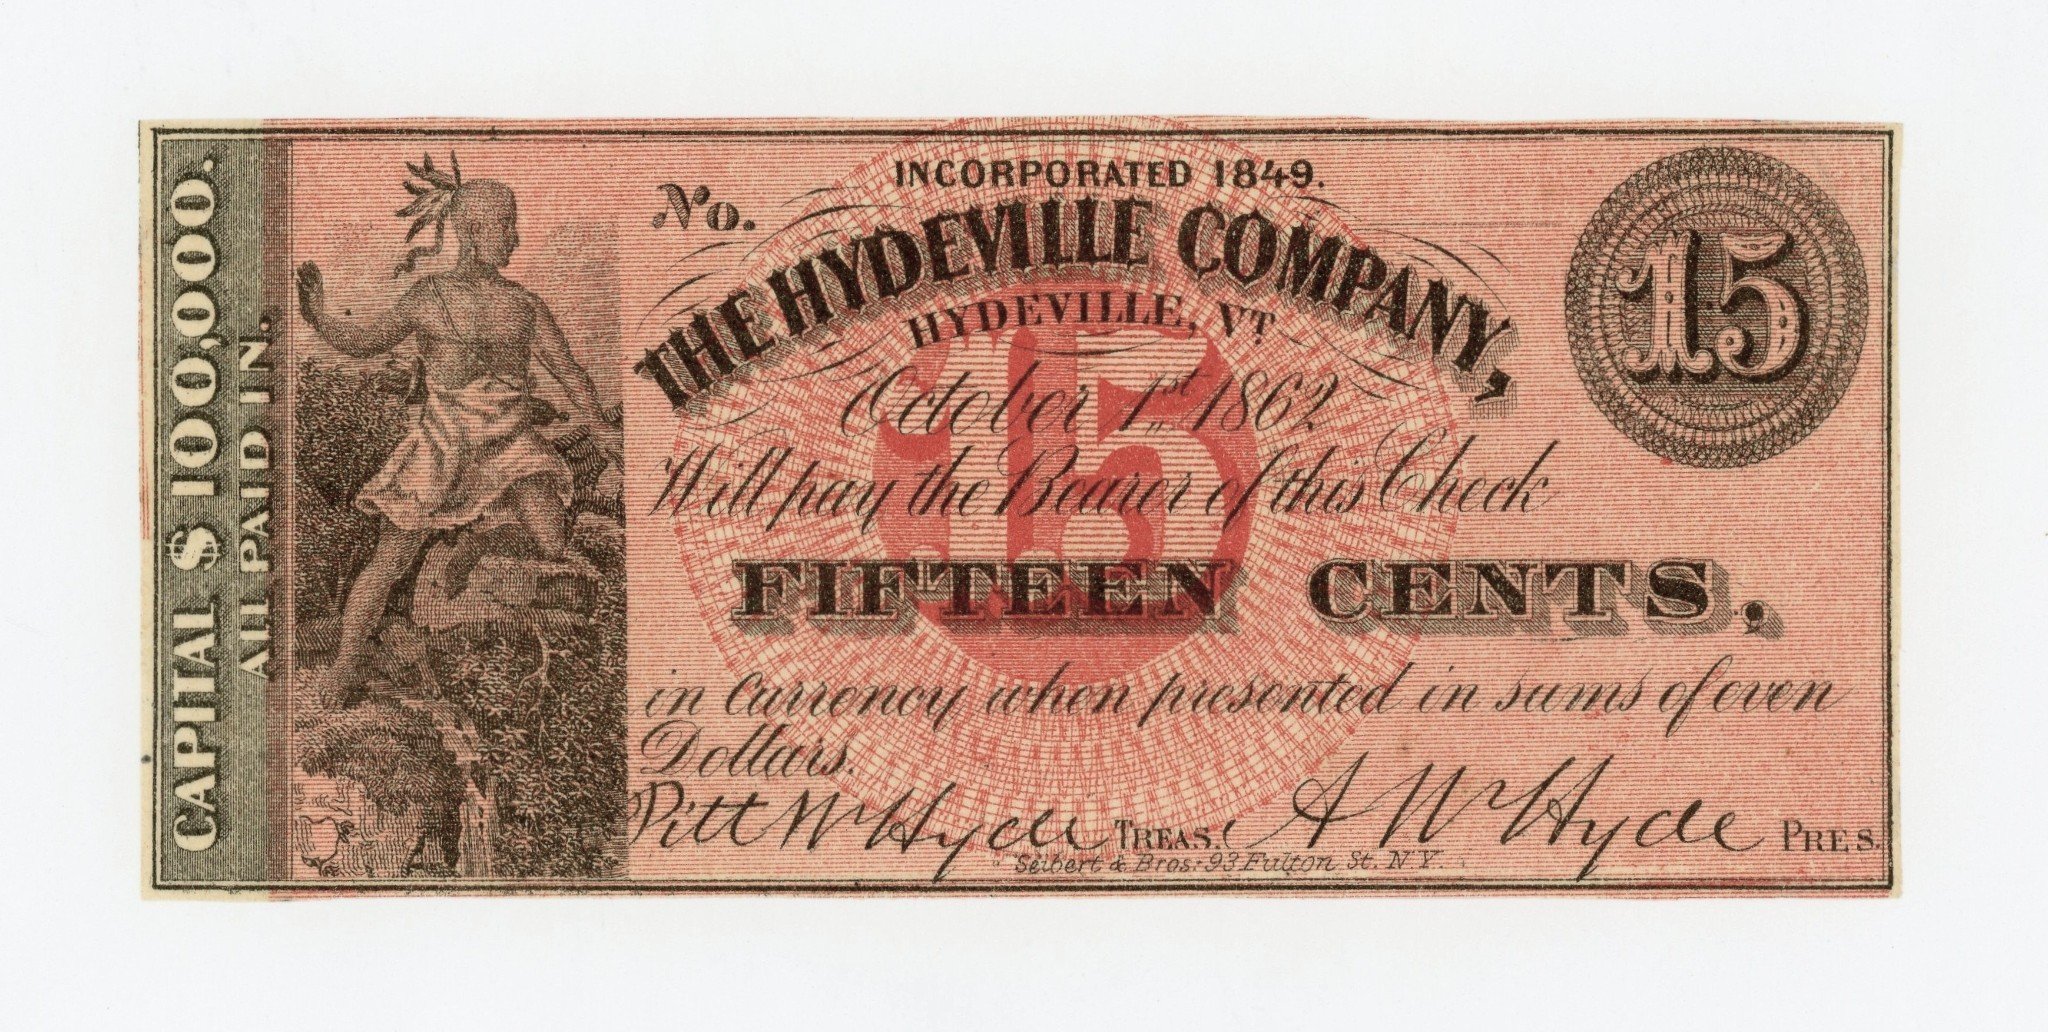 CAPITAL $ 100,000.
ALL PAID IN.
No.
INCORPORATED 1849.
THE HYDEVILLE COMPANY,
HYDEVILLE, VT
15
15
October 1st 1862
Will pay the Bearer of this Check
FIFTEEN CENTS,
in currency when presented in sums of even
Dollars.
Pitt W Hyde TREAS. A W Hyde PRES.
Seibert & Bros: 93 Fulton St. N Y.